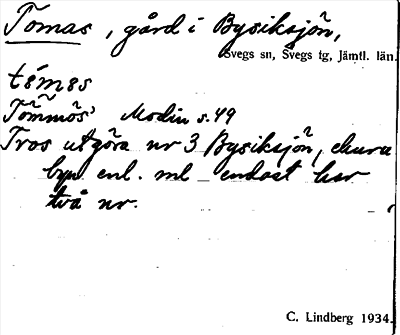 Tomas, gård i Bysiksjön,
Svegs sn, Svegs tg, Jämtl. län.
tömøs
Tömmös' Modin s. 49
Tros utgöra nr 3 Bysiksjön, ehuru
byn enl. ml endast har
två nr.
C. Lindberg 1934.